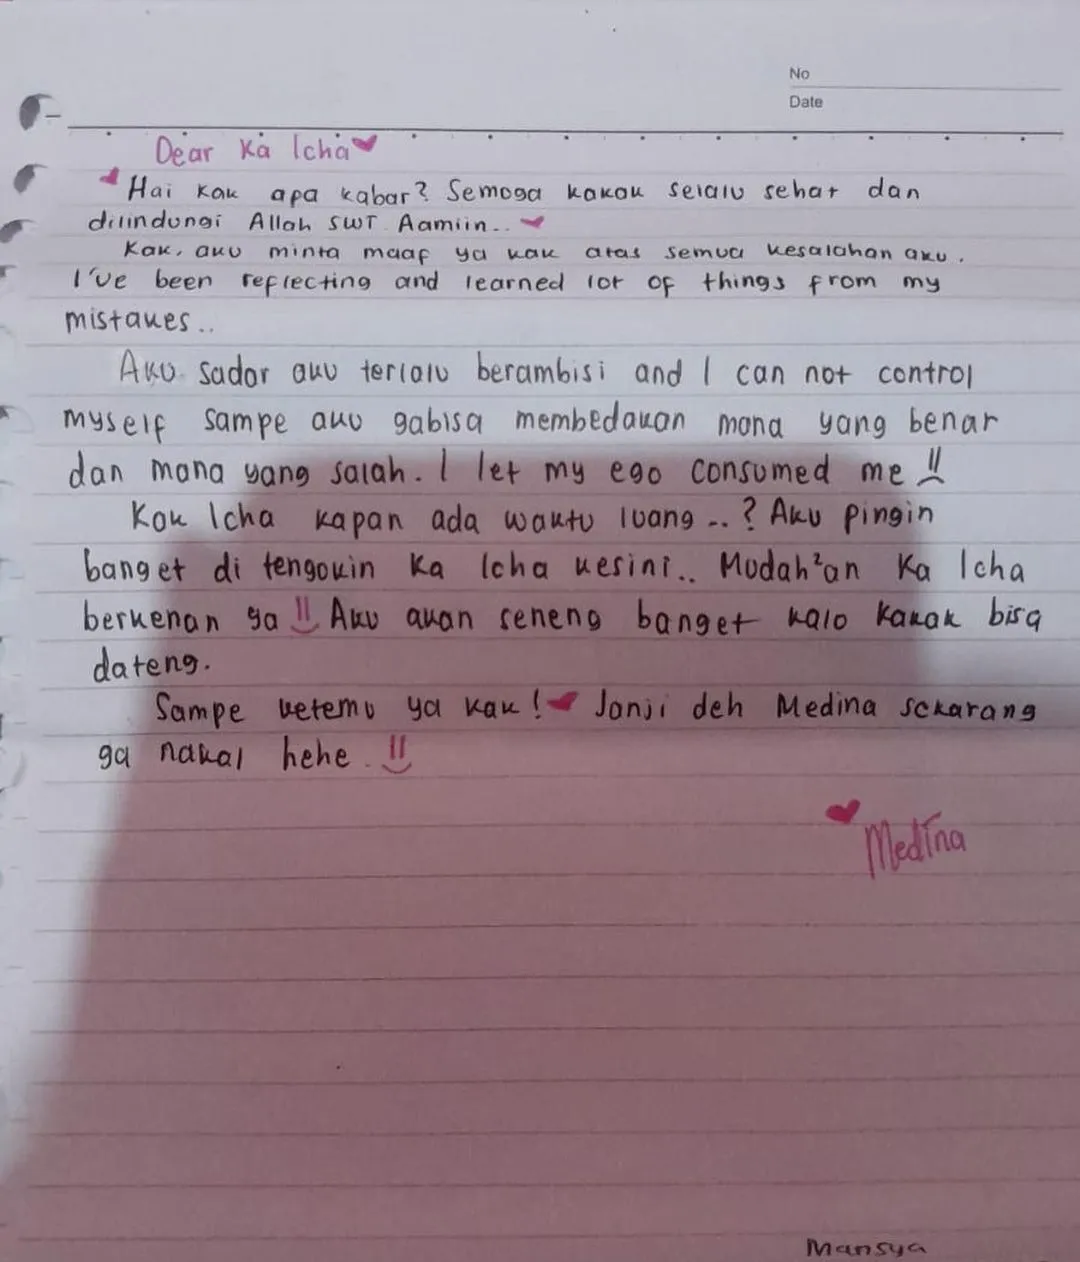 No
Date
Dear Ka Icha
Hai kak apa kabar? Semoga kakak selalu sehat dan
dilindungi Allah SWT Aamiin..
Kak, aku minta maaf ya kak atas semua kesalahan aku.
I've been reflecting and learned lot of things from my
mistakes..
Aku sadar aku terlalu berambisi and I can not control
myself sampe aku gabisa membedakan mana yang benar
dan mana yang salah. I let my ego consumed me!!
Kak Icha kapan ada waktu luang ..? Aku pingin
banget di tengokin Ka Icha kesini.. Mudah²an Ka Icha
berkenan ya!! Aku akan seneng banget kalo kakak bisa
dateng.
Sampe ketemu ya kak! Janji deh Medina sekarang
ga nakal hehe.!!
Medina
Mansya